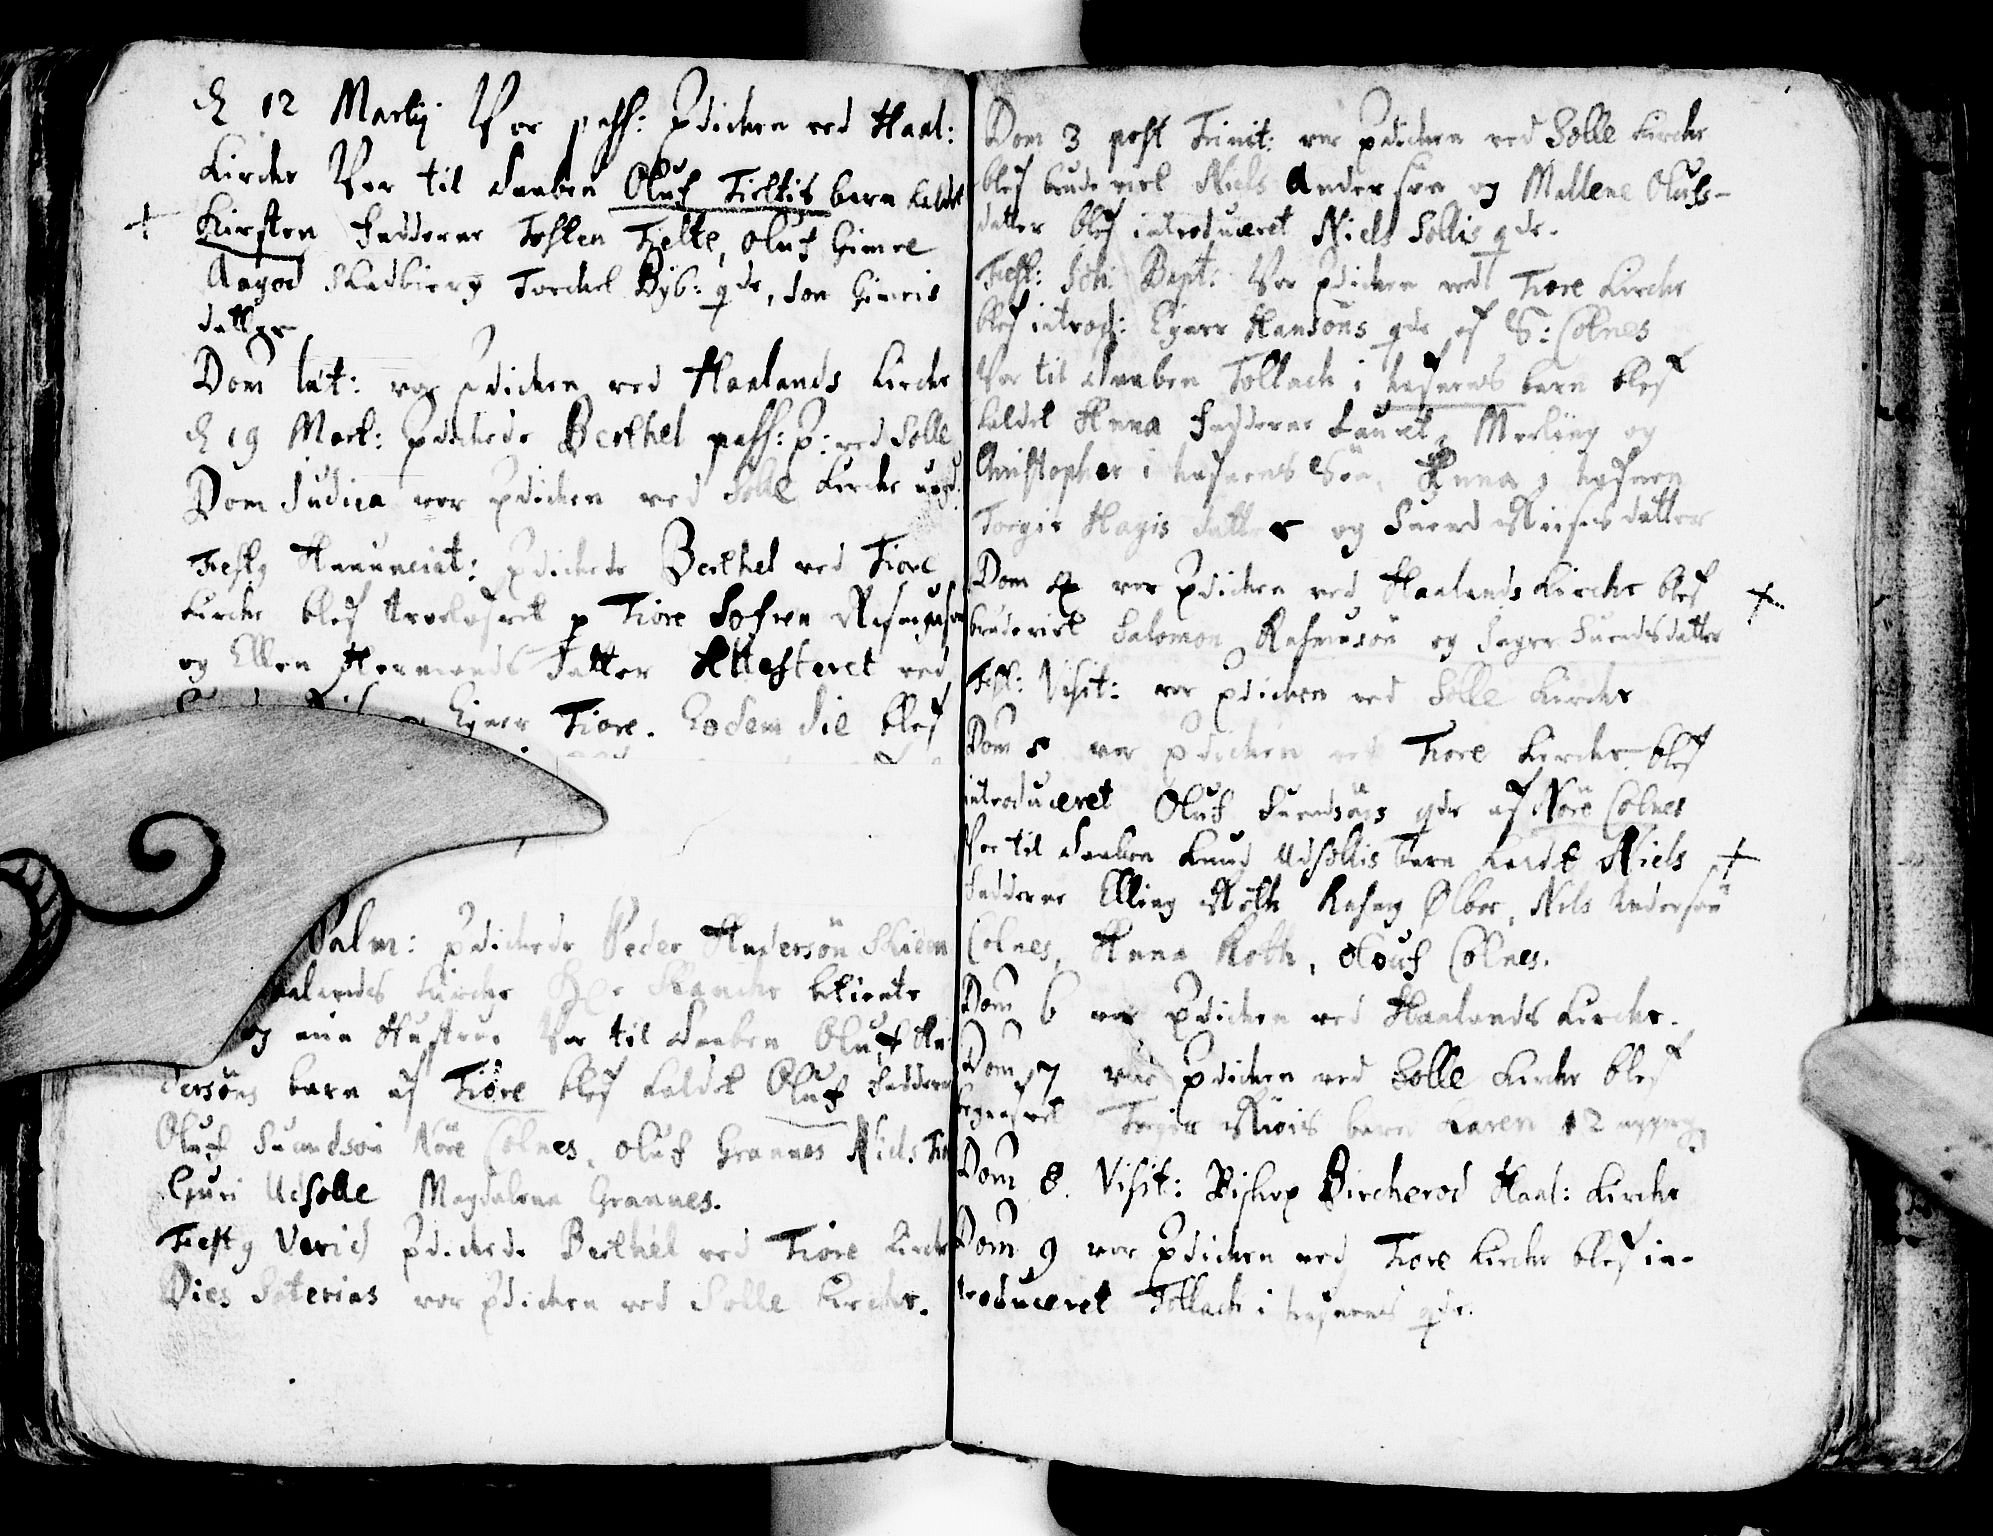 d 12 Martij Var pass: Prdicken ved Haal:
Kircke Var til Daaben Oluf Tieltis barn kaldet
+ Kirsten Faddere Tosten Tielte, Oluf Gimre
Aagod Skadbierg Torckel Byb: qde, Jon Gimris
datter
Dom læt: var Prdicken ved Haalands Kircke
d 19 Mart: Prdickede Berthel pass: P: ved Solle
Dom Judica var Prdicken ved Solle Kircke
Fest9 Annunciat: Prdickede Berthel ved Tiore
Kircke blef trolofvet p Tiore Lofven
og Ellen Hermends datter Attesteret ved
Eyner Tiore. Eodem die blef
Palm: Prdickede Peder Andersön Skien
Kircke betiente
og min Hustrue Var til Daaben Oluf An
dersöns barn af Tiöre blef kaldet Oluf Faddere
Oluf Suendsön Nöre Colnes, Oluf Grannes Niels Tio
Guri Udsolle Magdalena Grannes.
Fest9 Prdickede Berthel ved Tiore Kircke
Dies Soterias var Prdicken ved Solle Kircke.
Dom 3 post Trinit: var Prdicken ved Solle Kircke
blef brudeviet Niels Andersön og Mallene Olufs-
datter blef introduceret Niels Sollis qde.
Fest: Joh: Bapt: Var Prdicken ved Tiore Kircke
blef introd: Eyner Hansöns qde af S: Colnes
Var til Daaben Tollach i barn blef
kaldet Anna Faddere Meeling og
Christopher i Sön, Anna i
Torgir Hagis datter og Suend datter
Dom 4 var Prdicken ved Haalands Kircke blef +
brudeviet Salomon Rasmusön og Suendsdatter
Fest: Visit: var Prdicken ved Solle Kircke
Dom 5 var Prdicken ved Tiore Kircke blef
introduceret Oluf Suendsöns qde af Nöre Colnes
Var til Daaben Knud Udsollis barn kaldet Niels +
Faddere Elling Röth Rasm9 Ølber, Nels Andersön
Colnes, Anna Roth, Oluf Colnes.
Dom 6 var Prdicken ved Haalands Kircke.
Dom 7 var Prdicken ved Solle Kircke blef
barn Karen 12
Dom 8. Visit: Biskop Bircherod Haal: Kircke
Dom 9 var Prdicken ved Tiore Kircke blef in-
troduceret Tollach i qde.